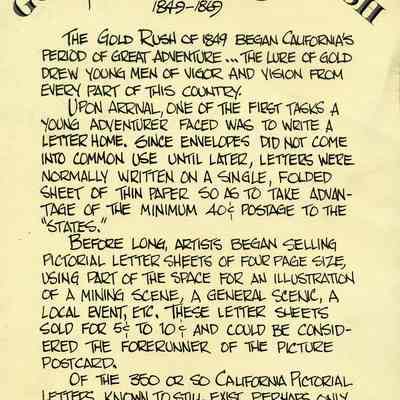 1849-1869
THE GOLD RUSH OF 1849 BEGAN CALIFORNIA'S
PERIOD OF GREAT ADVENTURE... THE LURE OF GOLD
DREW YOUNG MEN OF VIGOR AND VISION FROM
EVERY PART OF THIS COUNTRY.
UPON ARRIVAL, ONE OF THE FIRST TASKS A
YOUNG ADVENTURER FACED WAS TO WRITE A
LETTER HOME. SINCE ENVELOPES DID NOT COME
INTO COMMON USE UNTIL LATER, LETTERS WERE
NORMALLY WRITTEN ON A SINGLE, FOLDED
SHEET OF THIN PAPER SO AS TO TAKE ADVAN-
TAGE OF THE MINIMUM 40¢ POSTAGE TO THE
"STATES."
BEFORE LONG, ARTISTS BEGAN SELLING
PICTORIAL LETTER SHEETS OF FOUR PAGE SIZE,
USING PART OF THE SPACE FOR AN ILLUSTRATION
OF A MINING SCENE, A GENERAL SCENIC, A
LOCAL EVENT, ETC. THESE LETTER SHEETS
SOLD FOR 5¢ TO 10¢ AND COULD BE CONSID-
ERED THE FORERUNNER OF THE PICTURE
POSTCARD.
OF THE 350 OR SO CALIFORNIA PICTORIAL
LETTERS KNOWN TO STILL EXIST, PERHAPS ONLY